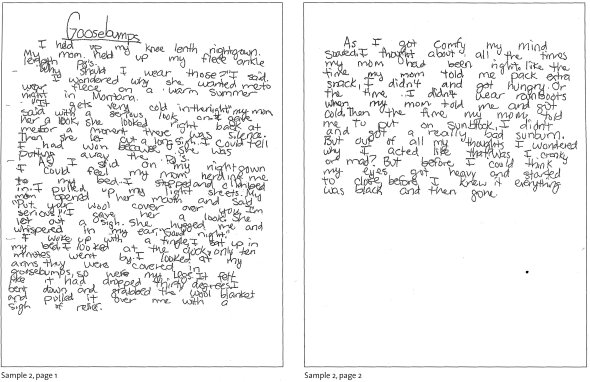 Goosebumps
I held up my knee lenth nightgown.
My mom held up my flece ankle
length PJ's.
Why should I wear those? I said
I wondered why she wanted me to
wear fleece on a warm summer
night in Montana.
"It gets very cold in the night" my mom
said with a serious look and I gave
her a look, she looked right back at
me for a moment there was silence.
Then she let out a long sigh. I could tell
I had won because she was
puting away the PJ's.
As I slid on my nightgown
I could feel my mom herding me
to my bed. I stopped and climbed
in. I pulled up my light sheets. My
mom opened her mouth and said
"Put your wool cover over you, I'm
serious!" I gave her a look. She
let out a sigh. She hugged me and
whispered in my ear, "good night."
I woke up with a tingle, I sat up in
my bed. I looked at the clock, only ten
minutes went by. I looked at my
arms they were covered in
goosebumps, so were my legs. It felt
like it had dropped thirty degrees. I
bent down and grabbed the wool blanket
and pulled it over me with a
sigh of relief.
Sample 2, page 1
As I got comfy my mind
started. I thought about all the times
my mom had been right, like the
time my mom told me pack extra
snack, I didn't and got hungry. Or
the time I didn't wear rainboots
when my mom told me and got
cold. Then the time my mom told
me to put on sunblock, I didn't
and got a really bad sunburn.
But out of all my thoughts I wondered
why I acted like that. Was I cranky
or mad? But before I could think
my eyes got heavy and started
to close before I knew it everything
was black and then gone.
Sample 2, page 2